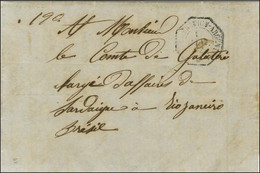 A Monsieur
le Comte de Galathri
chargé d'affaires de
Sardaigne à Riojaneiro
Brésil